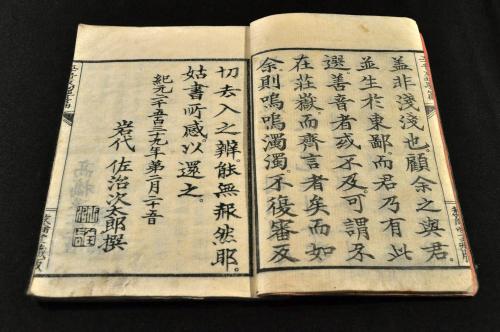 蓋非淺淺也。顧余之與君。
並生於東鄙而君乃有此
選善音者或不及可謂不
在莊嶽而齊言者矣而如
余則嗚嗚濁濁。不復審反
切去入之辨。能無赧然耶。
姑書所感。以還之。
紀元二千五百三十九年第二月二十五
岩代 佐治次太郎撰